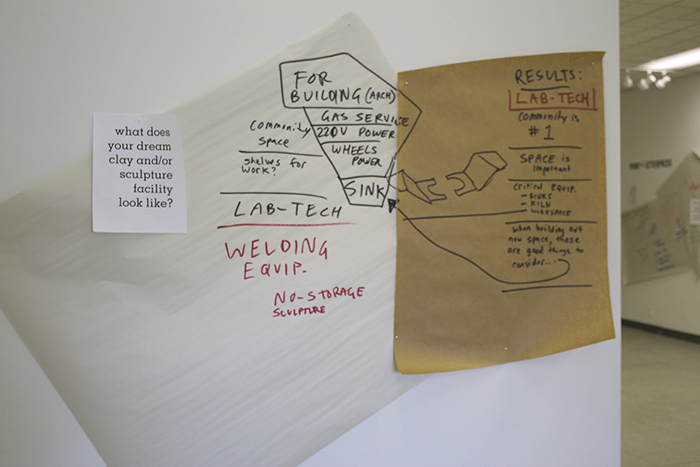 what does
your dream
clay and/or
sculpture
facility
look like?
FOR
BUILDING (ARCH)
GAS SERVICE
220V POWER
WHEELS
POWER
SINK
Community
Space
shelves for
work?
LAB-TECH
WELDING
EQUIP.
NO-STORAGE
SCULPTURE
RESULTS:
LAB-TECH
Community is
#1
SPACE is
important
critical EQUIP.
- SINKS
- KILN
- WORKSPACE
when building out
new space, these
are good things to
consider...